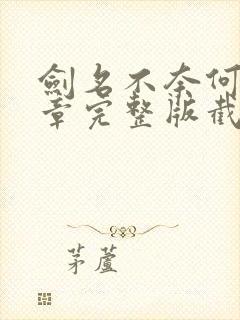 劍名不奈何
章完整版截
茅蘆